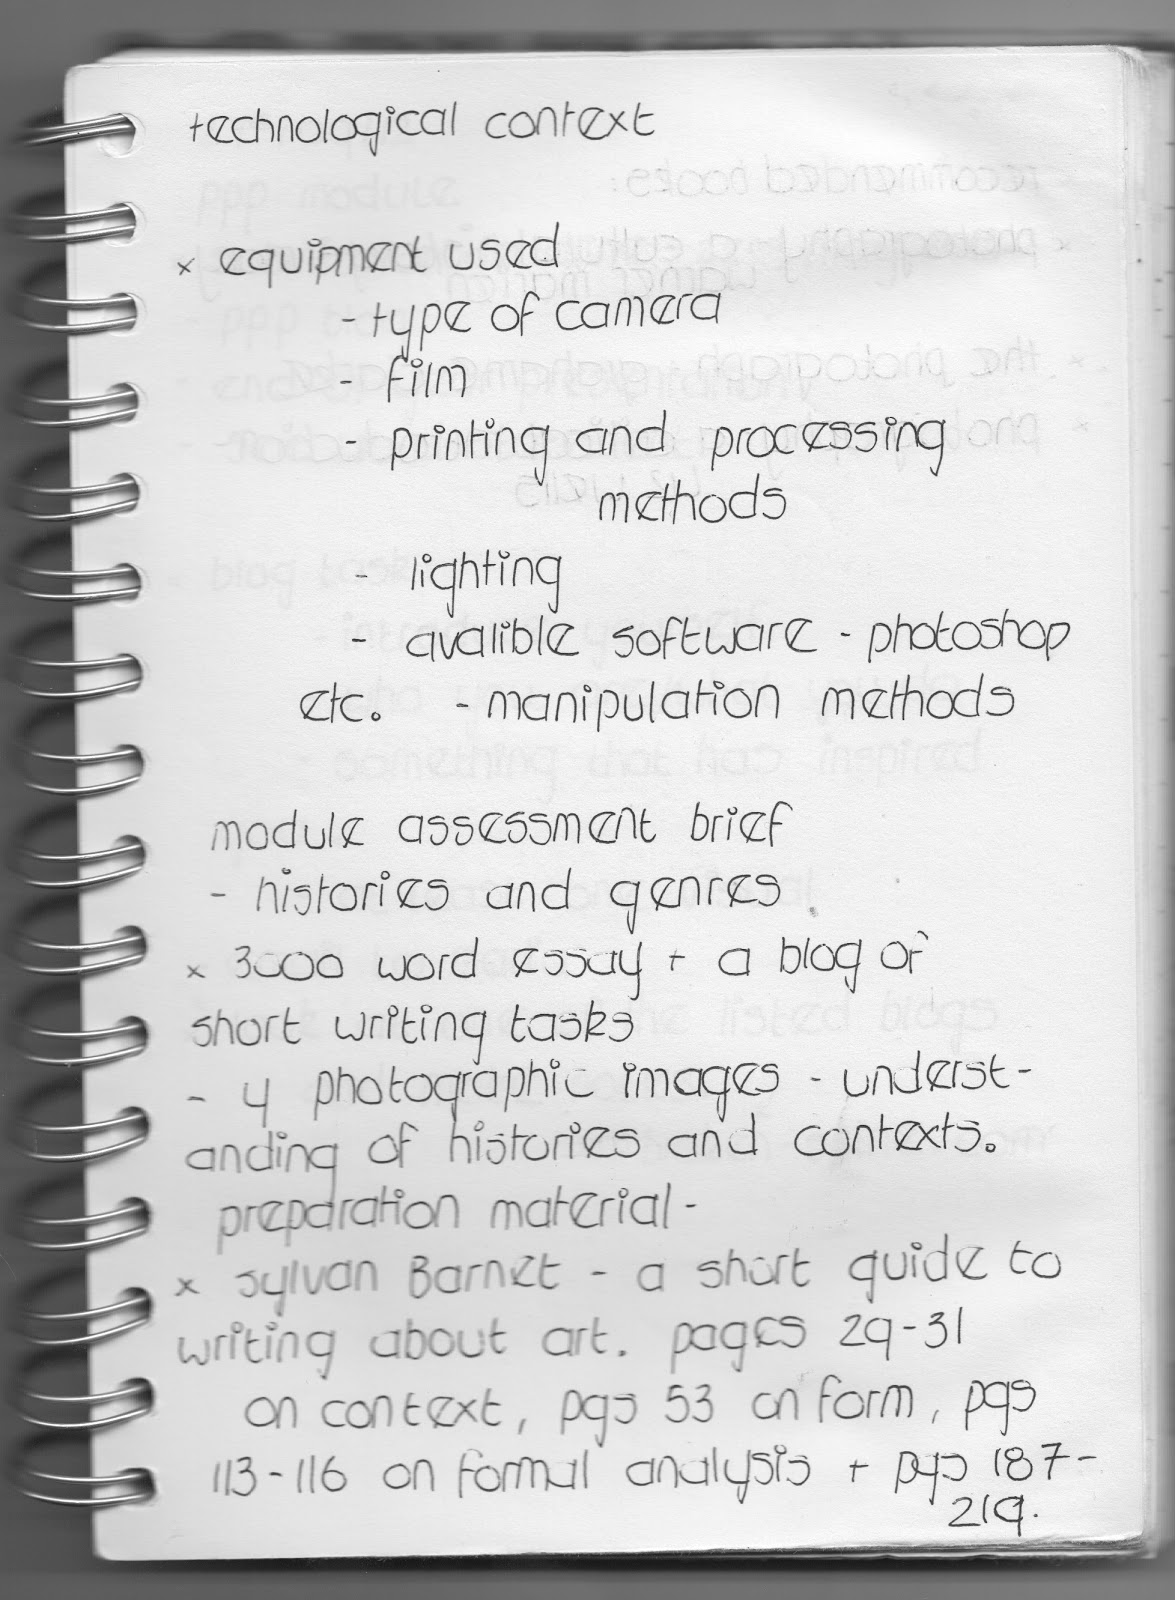 technological context
x equipment used
- type of camera
- film
- printing and processing
methods
- lighting
- avalible software - photoshop
etc. - manipulation methods
module assessment brief
- histories and genres.
x 3000 word essay + a blog of
short writing tasks
- 4 photographic images - underst-
anding of histories and contexts.
preparation material -
x sylvan Barnet - a short guide to
writing about art. pages 29-31
on context, pgs 53 on form, pgs
113-116 on formal analysis + pgs 187-
219.